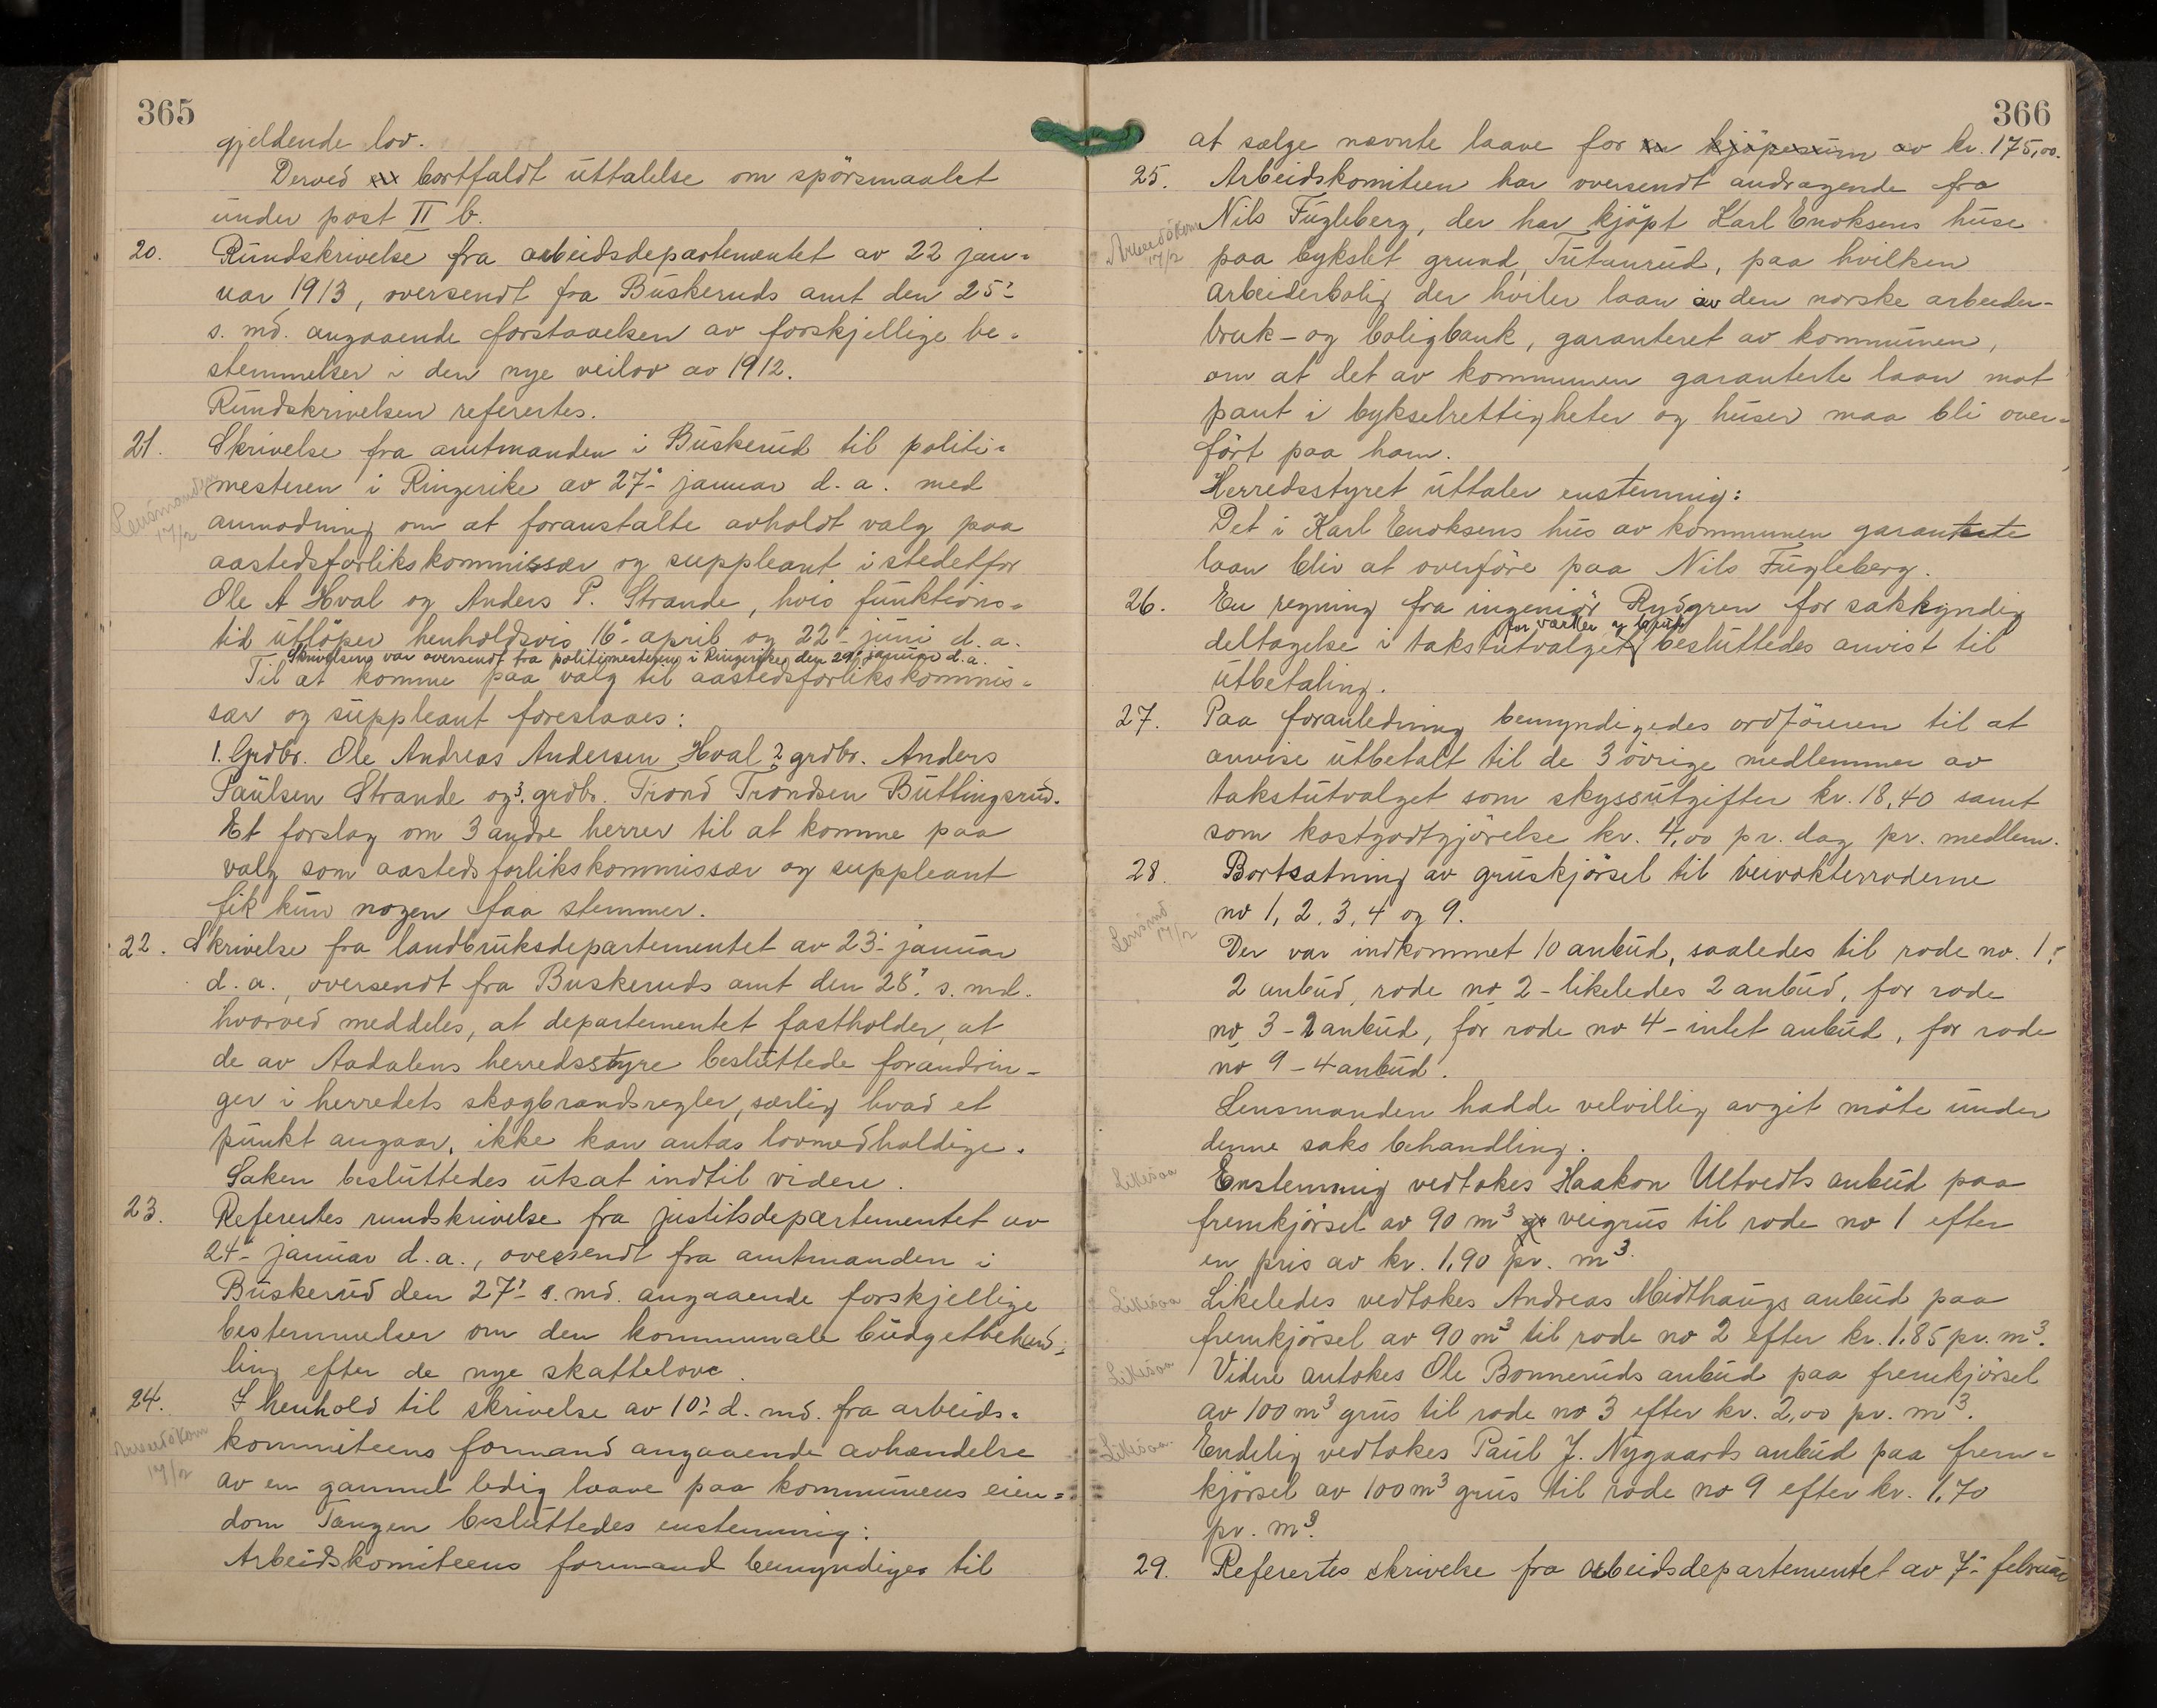 365
gjeldende lov.
Derved bortfaldt uttalelse om spörsmaalet
under post II b.
20. Rundskrivelse fra arbeidsdepartementet av 22 jan-
uar 1913, oversendt fra Buskeruds amt den 25'-
s. md. angaaende forstaaelsen av forskjellige be-
stemmelser i den nye veilov av 1912.
Rundskrivelsen referertes.
21. Skrivelse fra amtmanden i Buskerud til politi-
Lensmanden
mesteren i Ringerike av 27- januar d. a. med
17/2
anmodning om at foranstalte avholdt valg paa
aastedsforlikskommissær og suppleant istedetfor
Ole A Hval og Anders P. Strande, hvis funktions-
tid utlöper henholdsvis 16- april og 22- juni d. a.
Skrivelsen var oversendt fra politimesteren i Ringerike den 29- januar d.a.
Til at komme paa valg til aastedsforlikskommis-
sær og suppleant foreslaaes:
1. Grdbr. Ole Andreas Andersen Hval 2 grdbr. Anders
Paulsen Strande og 3. grdbr. Trond Trondsen Buttingsrud.
Et forslag om 3 andre herrer til at komme paa
valg som aastedsforlikskommissær og suppleant
fik kun nogen faa stemmer.
22. Skrivelse fra landbruksdepartementet av 23- januar
d. a., oversendt fra Buskeruds amt den 28'. s. md.
hvorved meddeles, at departementet fastholder, at
de av Aadalens herredsstyre besluttede forandrin-
ger i herredets skogbrandsregler, særlig hvad et
punkt angaar, ikke kan antas lovmedholdige.
Saken besluttedes utsat indtil videre.
23. Referertes rundskrivelse fra justitsdepartementet av
24- januar d. a., oversendt fra amtmanden i
Buskerud den 27'- s. md. angaaende forskjellige
bestemmelser om den kommunale budgetbehand-
ling efter de nye skattelove.
24. I henhold til skrivelse av 10'- d. md. fra arbeids-
Arbeidskom
kommiteens formand angaaende avhændelse
17/2
av en gammel ledig laave paa kommunens eien-
dom Tangen besluttedes enstemmig:
Arbeidskomiteens formand bemyndiges til
366
at sælge nævnte laave for en kjöpesum av kr. 175,00.
25. Arbeidskomiteen har oversendt andragende fra
Nils Fugleberg, der har kjöpt Karl Enoksens huse
Arbeidskom
17/2
paa bykslet grund, Tutanrud, paa hvilken
arbeiderbolig der hviler laan av den norske arbeider-
bruk- og boligbank, garanteret av kommunen,
om at det av kommunen garanterte laan mot
pant i bykselrettigheter og huser maa bli over-
fört paa ham.
Herredsstyret uttaler enstemmig:
Det i Karl Enoksens hus av kommunen garanterte
laan blir at overföre paa Nils Fugleberg.
26. En regning fra ingeniör Rydgren for sakkyndig
for verker og bruk
deltagelse i takstutvalget besluttedes anvist til
utbetaling.
27. Paa foranledning bemyndigedes ordföreren til at
anvise utbetalt til de 3 övrige medlemmer av
takstutvalget som skyssutgifter kr. 18,40 samt
som kostgodtgjörelse kr. 4,00 pr. dag pr. medlem.
28. Bortsætning av gruskjörsel til veivokterroderne
no 1, 2, 3, 4 og 9.
Lensmd
17/2
Der var indkommet 10 anbud, saaledes til rode no. 1:
2 anbud, rode no 2 - likeledes 2 anbud, for rode
no 3 - 2 anbud, for rode no 4 - intet anbud, for rode
no 9 - 4 anbud.
Lensmanden hadde velvillig avgit möte under
denne saks behandling.
Likesaa
Enstemmig vedtokes Haakon Ultvedts anbud paa
fremkjörsel av 90 m³ veigrus til rode no 1 efter
en pris av kr. 1,90 pr. m³.
Likesaa
Likeledes vedtokes Andreas Midthaugs anbud paa
fremkjörsel av 90 m³ til rode no 2 efter kr. 1.85 pr. m³.
Likesaa
Videre antokes Ole Bonneruds anbud paa fremkjörsel
av 100 m³ grus til rode no 3 efter kr. 2,00 pr. m³.
Likesaa
Endelig vedtokes Paul J. Nygaards anbud paa frem-
kjörsel av 100 m³ grus til rode no 9 efter kr. 1,70
pr. m³.
29. Referertes skrivelse fra arbeidsdepartementet av 7- februar